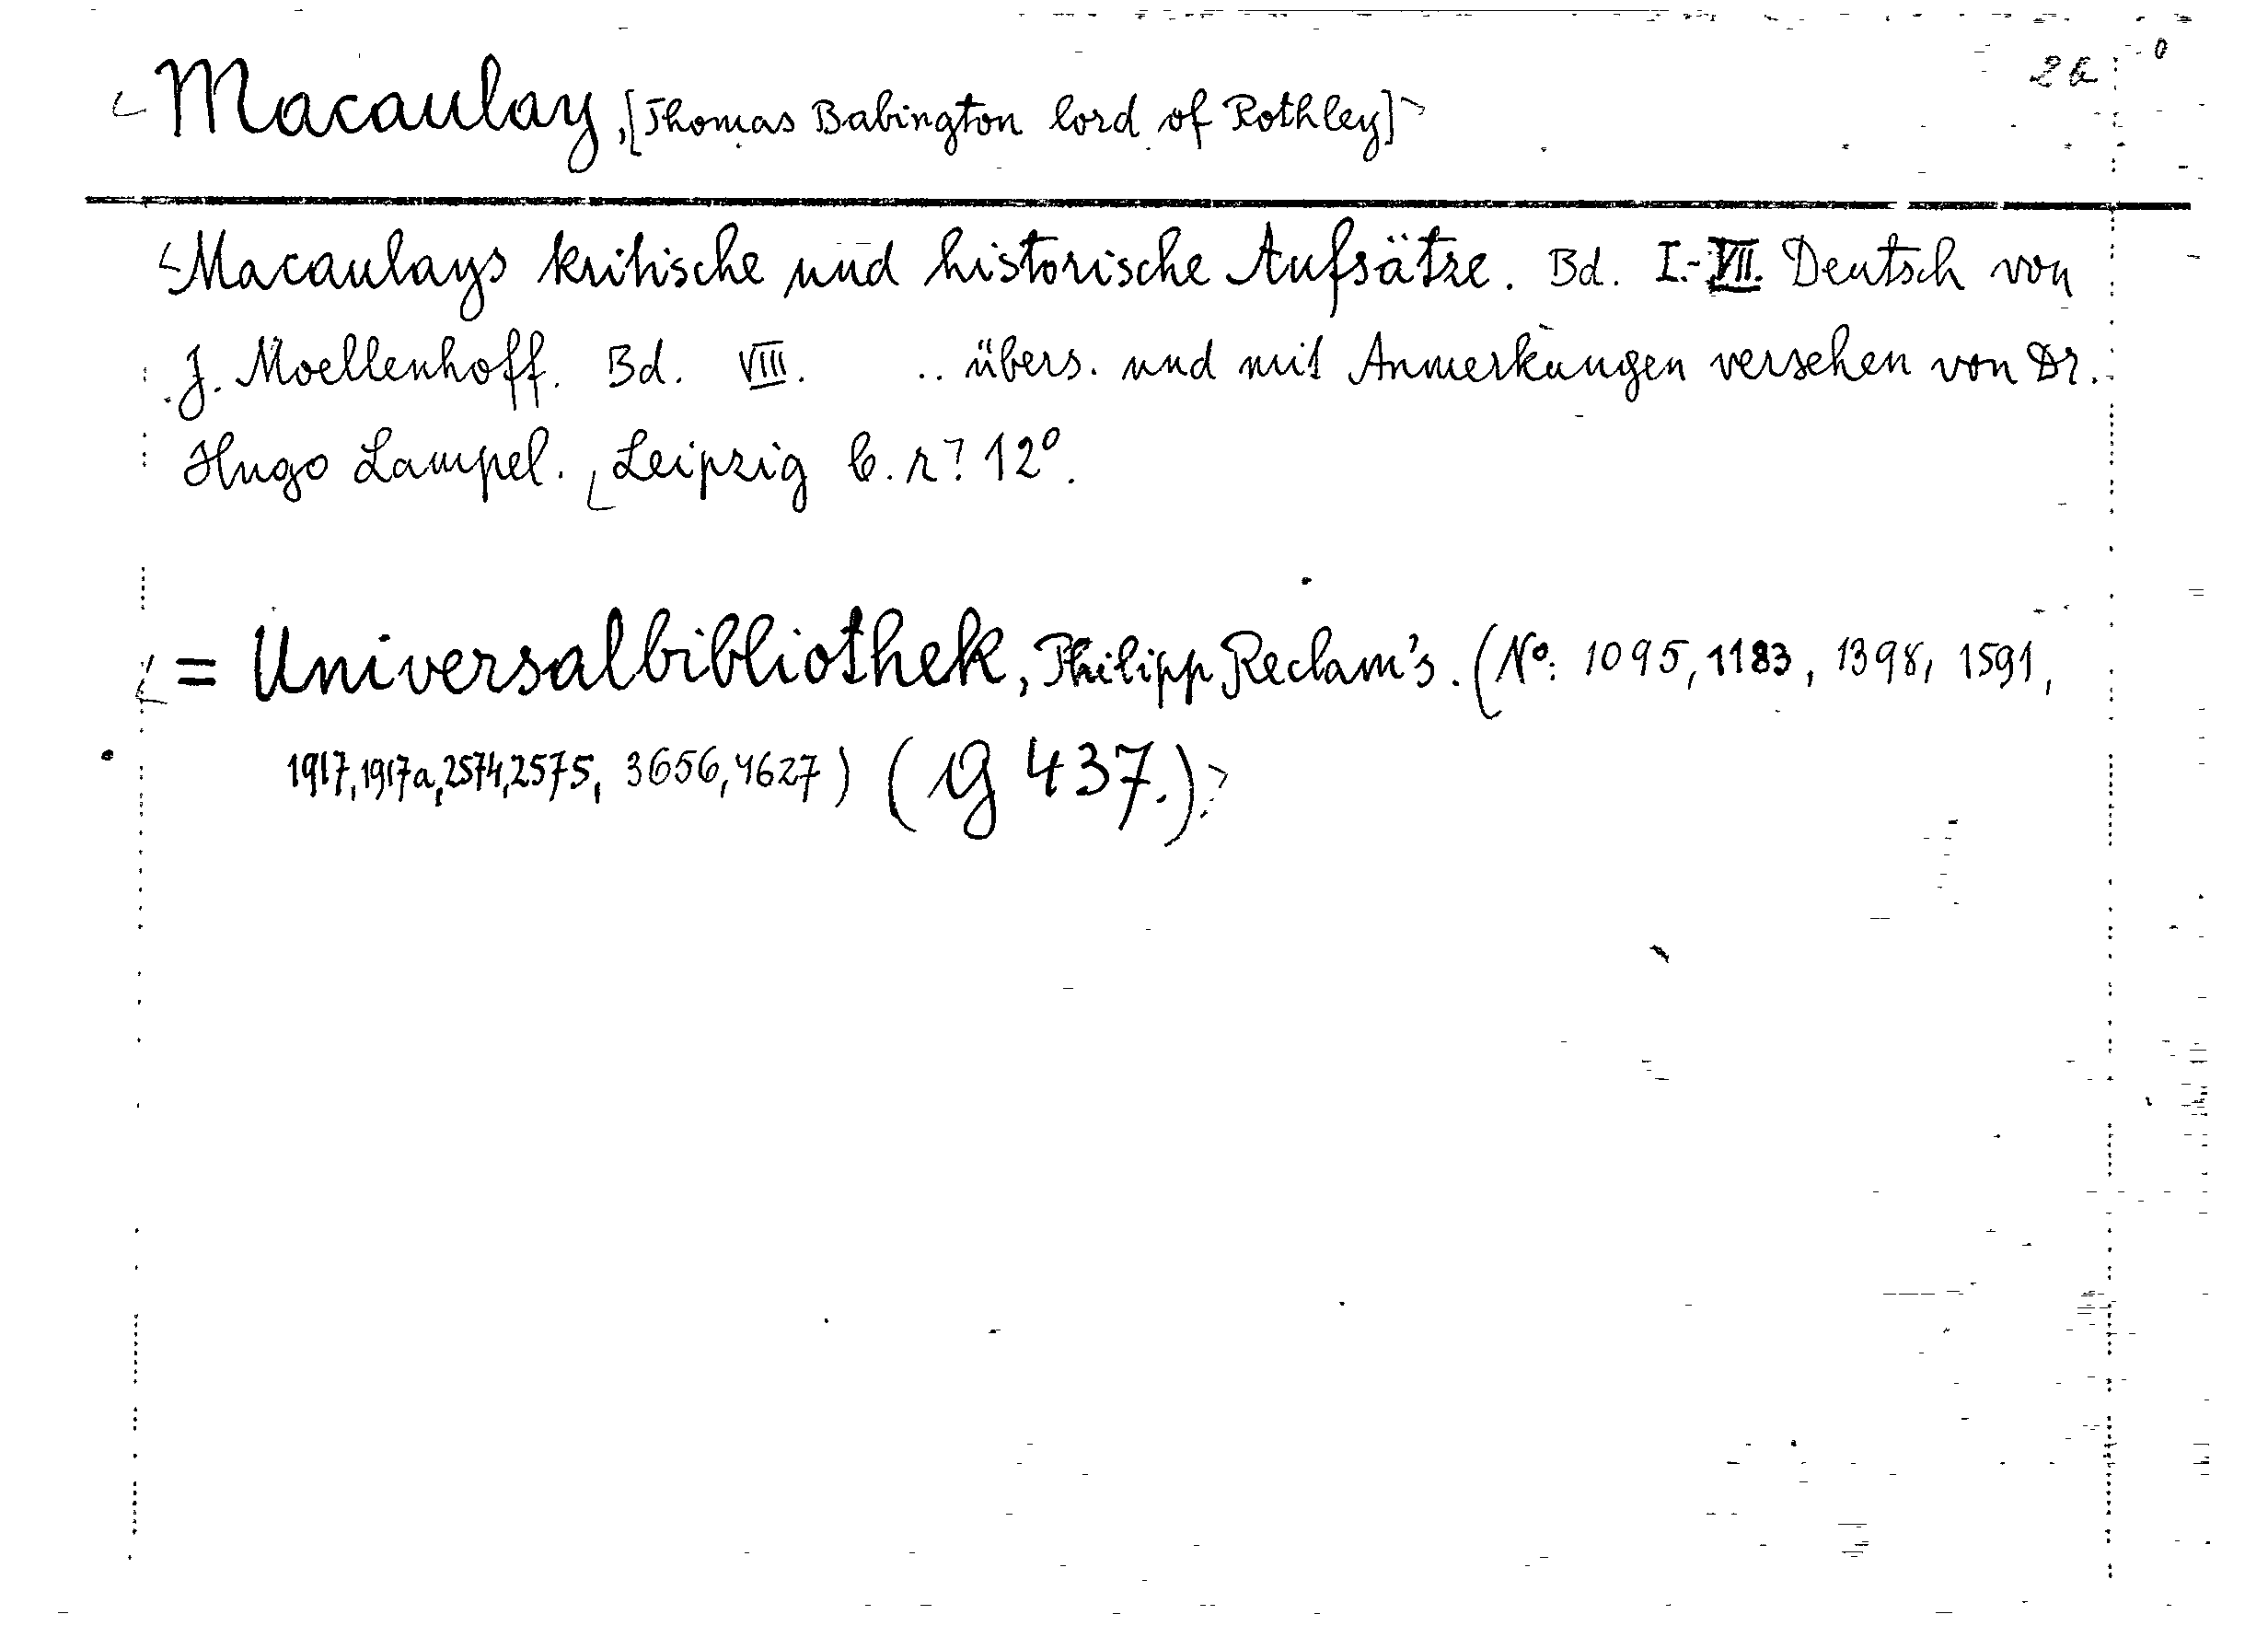 2 b
Macaulay, [Thomas Babington lord of Rothley]
Macaulays kritische und historische Aufsätze. Bd. I.-VII. Deutsch von
J. Moellenhoff. Bd. VIII. .. übers. und mit Anmerkungen versehen von Dr.
Hugo Lampel. Leipzig b. r? 12°.
= Universalbibliothek, Philipp Reclam's. (No: 1095, 1183, 1398, 1591,
1917, 1917a, 2574, 2575, 3656, 4627) (G 437.)